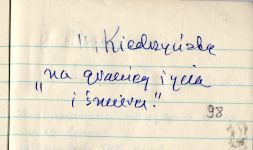 Kiedrzyńska
"na granicy życia
i śmierci."
98